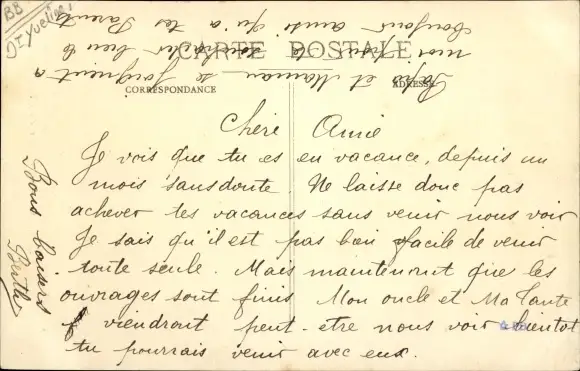 BB
Dt Yvelines
CARTE POSTALE
CORRESPONDANCE
ADRESSE
Chère Amie
Je vois que tu es en vacance, depuis un
mois sans doute. Ne laisse donc pas
achever tes vacances sans venir nous voir
Je sais qu'il est pas bien facile de venir
toute seule. Mais maintenant que les
ouvrages sont finis Mon oncle et Ma Tante
viendront peut-etre nous voir bientot
tu pourrais venir avec eux.
Papa et Maman se joignent a
moi pour te souhaiter bien le
bonjour ainsi qu'a tes Parents
Bons baisers
Berthe